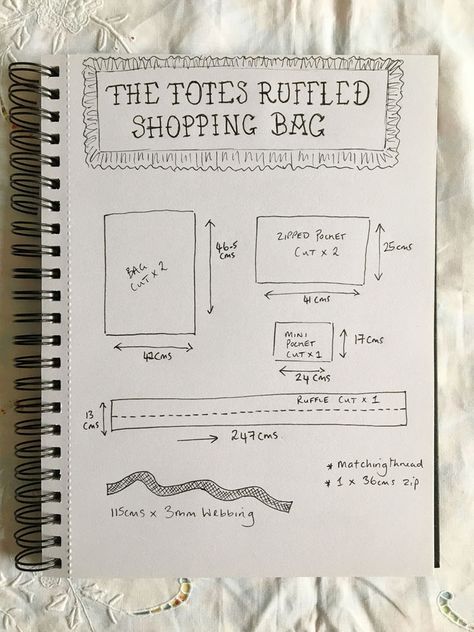 THE TOTES RUFFLED
SHOPPING BAG
BAG
CUT x 2
46.5
cms
42cms
ZIPPED POCKET
CUT x 2
25cms
41 cms
MINI
POCKET
CUT x 1
17cms
24 cms
RUFFLE CUT x 1
13
cms
247cms.
* matching thread
* 1 x 36cms zip
115cms x 3mm webbing